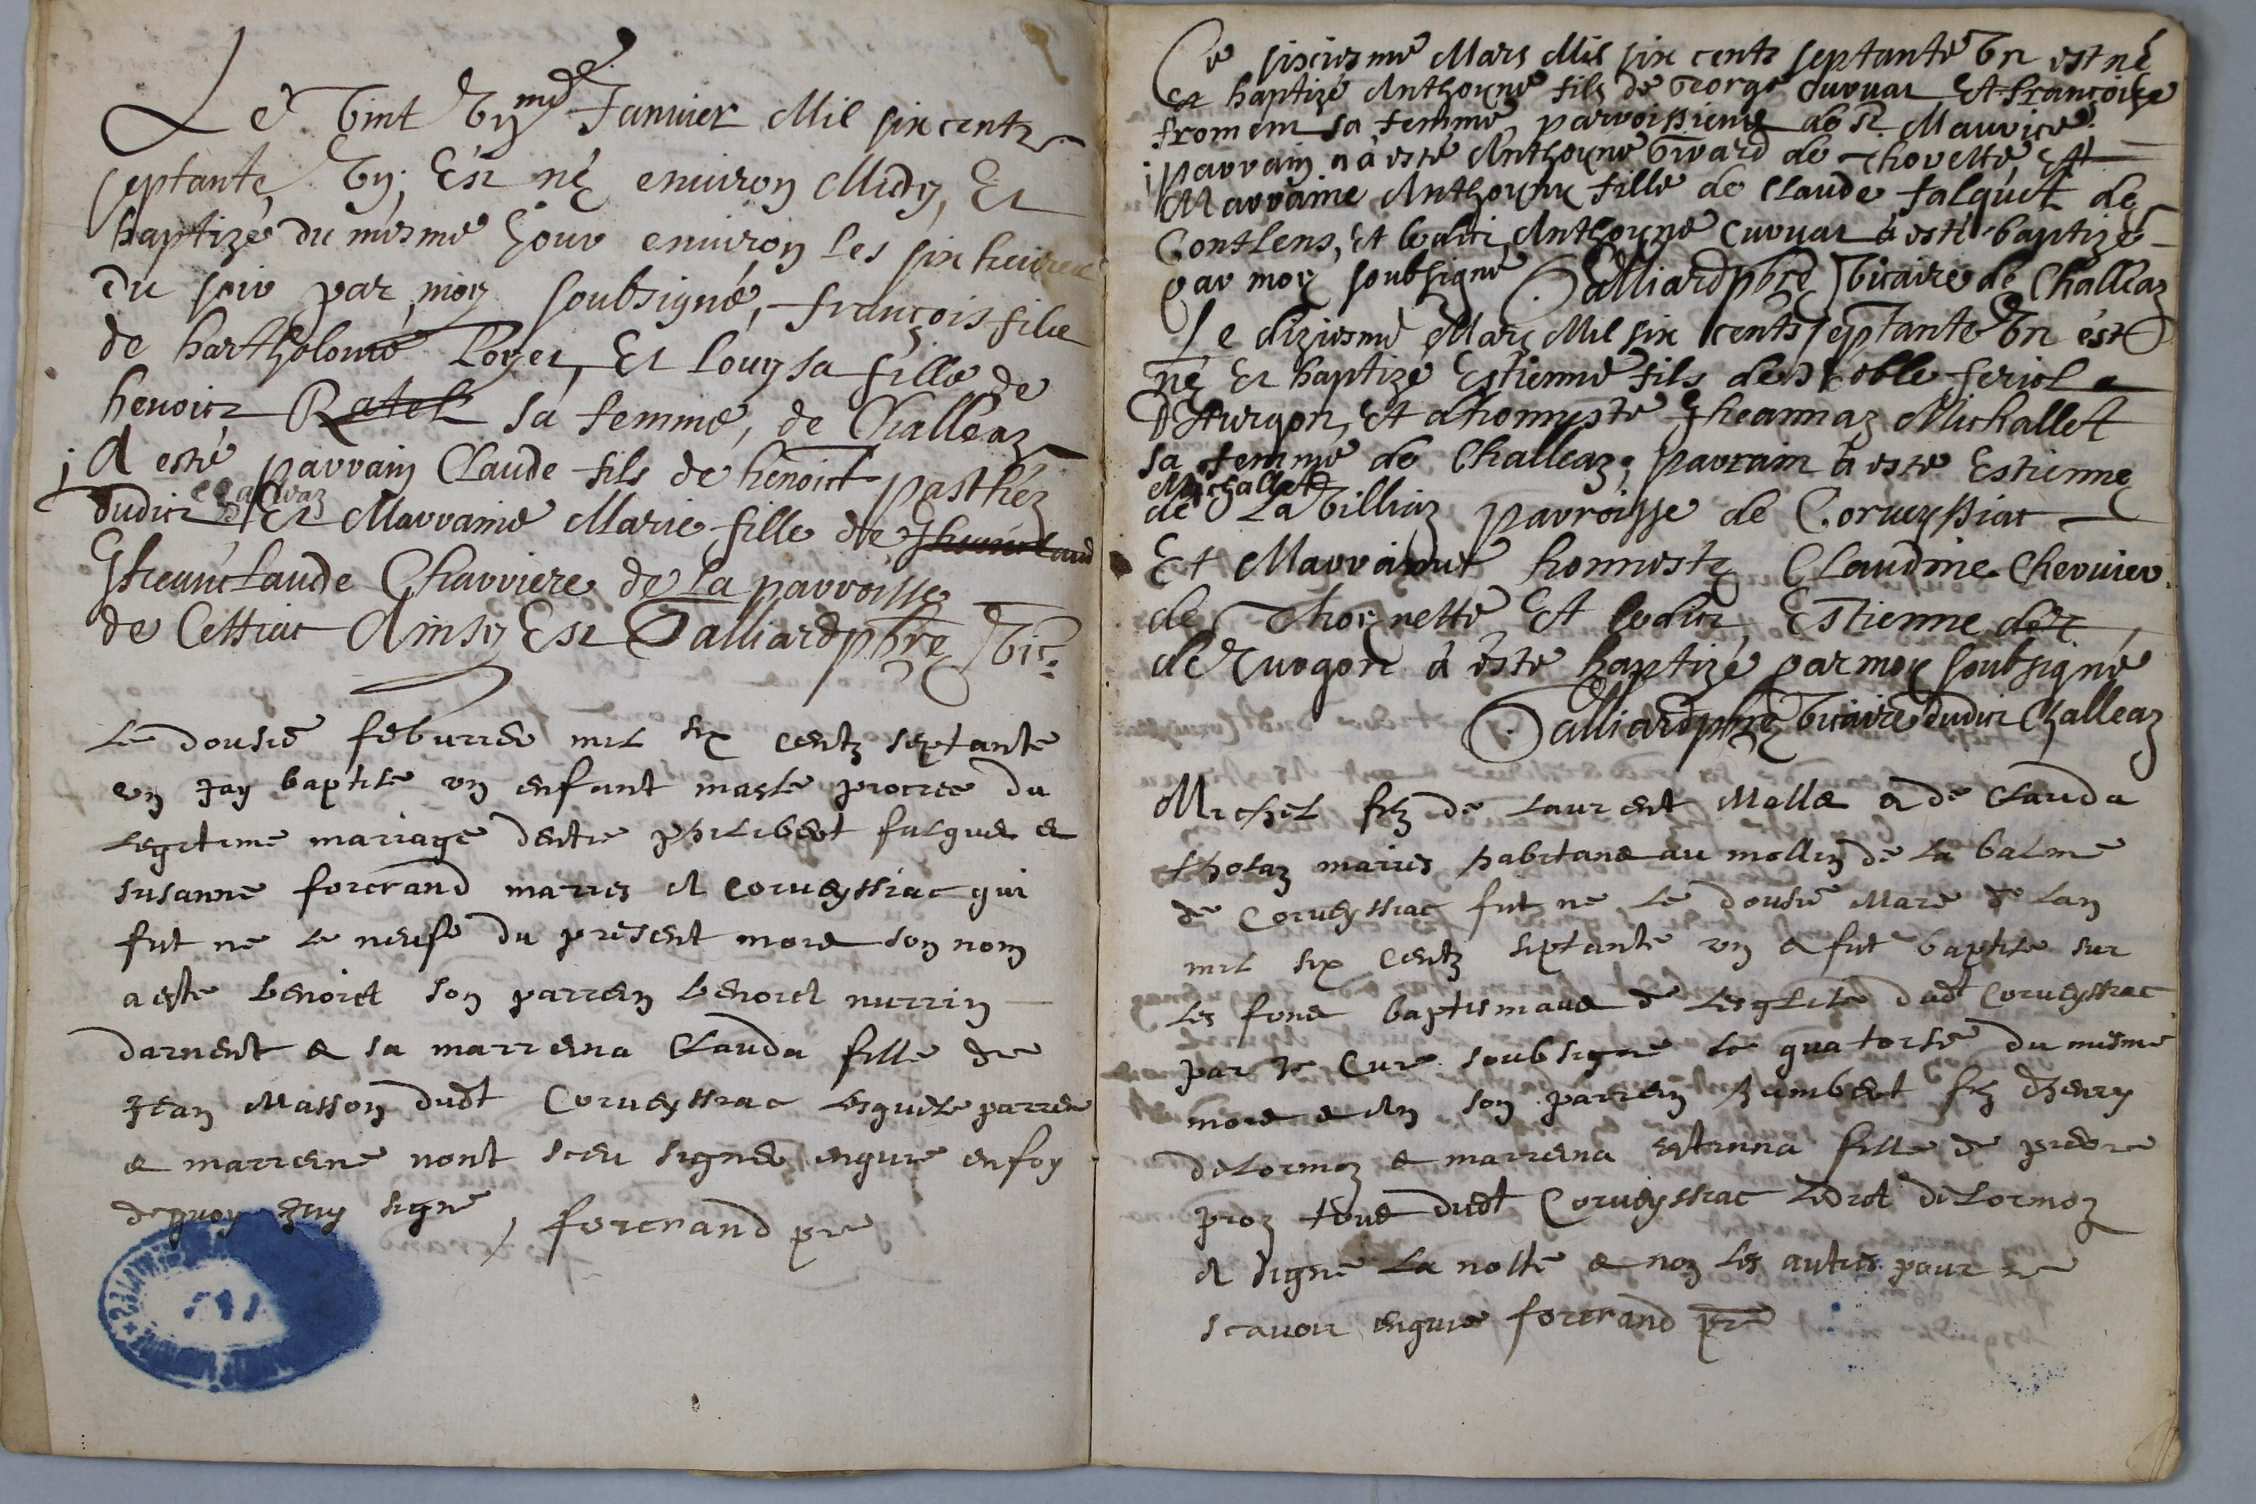 Le vint un.me de Januier Mil six cents
septante, un; Est né enuiron Midy, Et
baptizé du mesme Jour enuiron les six heures
du soir par moy soubsigné, françois fils
de bartholomé Loyer, Et Louysa fille de
benoict Ratel sa femme, de Challeaz
A esté parrain Claude fils de benoict pasthez
dudict Challeaz Et Marraine Marie fille de
Jheanclaude Charriere de La parroisse
de Cessiat Ainsy Est Dalliard pbre Vic:
Le dousie feburier mil six centz septante
un Jay baptise un enfant masle procree du
Legitime mariage dentre philibert fulgue et
susanne forcrand maries a Corueyssiac qui
fut ne le neufe du present mois son nom
a este benoict son parrein benoict nurrin
darnent et sa marreina Clauda fille de
Jean Masson dudt Corueyssiac Lesquels parrein
et marreine nont sceu signer enquis enfoy
dequoy Jay signe forcrand pre
Ce sixiesme Mars Mil six cents septante un est né
Et baptizé Anthoyne fils de George Curuat Et françoize
froment sa femme, parroissiens de St Maurice.
parrain a esté Anthoyne Girard de Thovette, Et
Marraine Anthoyne fille de Claude falquet de
Conflens, Et ledict Anthoyne Curuat a esté baptizé
par moy soubsigné Dalliard pbre Vicaire de Challeaz
Le diziesme Mars Mil six cents septante un est
né Et baptizé Estienne fils de Noble feriol
Durgon, Et dhonneste Jheannaz Michallet
sa femme de Challeaz; parrain a esté Estienne
Michallet
de La Villiaz parroisse de Corueyssiat
Et Marraine honneste Claudine Cheruier
de Thoynette Et ledict Estienne
de Ruogon a esté baptizé par moy soubsigné
Dalliard pbre Vicaire dudict Challeaz
Michel filz de Laurent Molle et de Clauda
thotaz maries habitans au mollin de La balme
de Corueyssiac fut ne Le dousie Mars de Lan
mil six centz septante un et fut baptise sur
Les fons baptismaux de Lesglise dudt Corueyssiac
par le Cure soubsigne le quatorse du mesme
mois et an son parrein humbert filz dhenry
delormoz et marreina estienna fille de pierre
proz tous dudt Corueyssiac Ledict delormoz
a signe La notte et non les autres pour ne
scauoir enquis forcrand pre